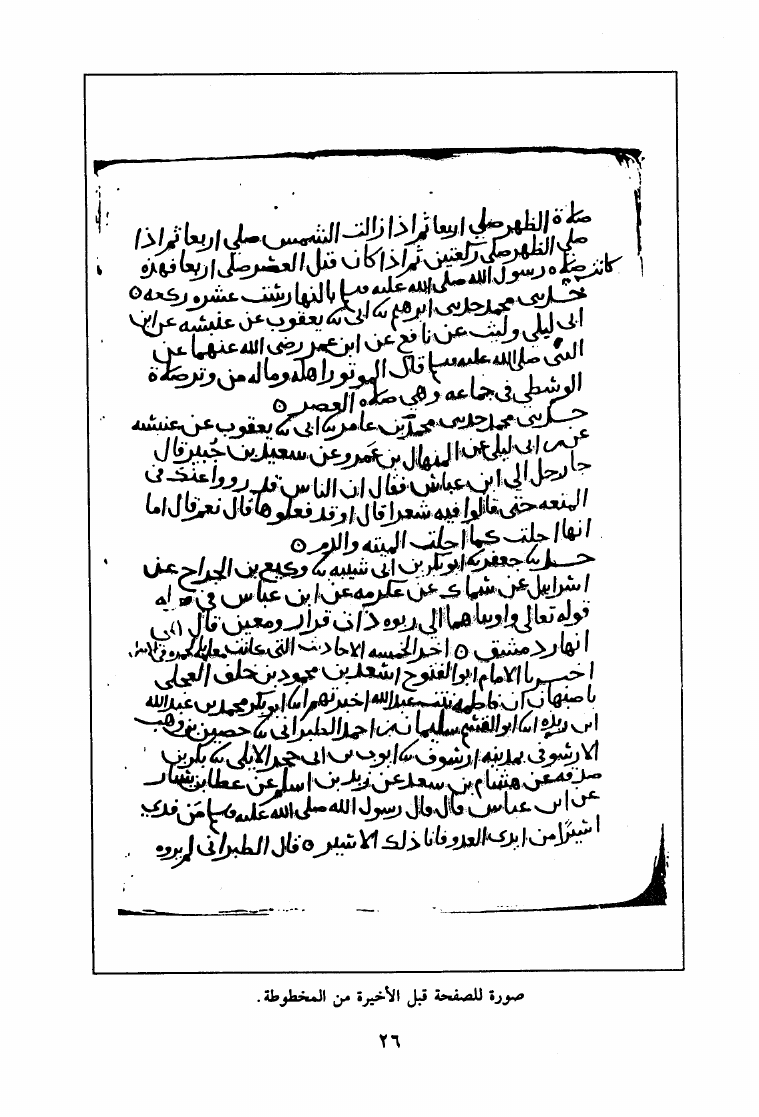 صلاة الظهر صلى اربعا ثم اذا زالت الشمس صلى اربعا ثم اذا
صلى الظهر صلى ركعتين ثم اذا كان قبل العصر صلى اربعا فهذه
كانت صلاة رسول الله صلى الله عليه وسلم بالنهار ست عشره ركعه ٥
حدثني محمد حدثني ابرهيم بن ابي يعقوب عن عنبسه عن ابن
ابي ليلى وليث عن نافع عن ابن عمر رضي الله عنهما عن
النبي صلى الله عليه وسلم قال الموتور اهله وماله من وتر صلاة
الوسطى في جماعه وهي صلاه العصر ٥
حدثني محمد حدثني محمد بن عامر يعقوب عن عنبسه
عن ابن ابي ليلى عن المنهال بن عمرو عن سعيد بن جبير قال
جا رجل الى ابن عباس فقال ان الناس قد رووا عنك في
المتعه حتى قالوا فيه شعرا قال او قد فعلوها قال نعم قال اما
انها احلت كما احلت الميته والدم ٥
جعفر ابو بكر بن ابي شيبه وكيع بن الجراح عن
اسرايل عن سماك عن عكرمه عن ابن عباس في
قوله تعالى واويناهما الى ربوه ذات قرار ومعين قال
انهار دمشق ٥ اخر الخمسه الاحاديث التي
اخبرنا الامام ابو الفتوح اسعد بن محمود بن خلف العجلي
باصبهان ان فاطمه بنت عبد الله اخبرتهم ابو بكر محمد بن عبد الله
ابن ريذه ابو القسم سليمان بن احمد الطبراني حصين بن وهب
الارسوفي بمدينه ارسوف ايوب بن ابي حجر الايلي بكر بن
صدقه عن هشام بن سعد عن زيد بن اسلم عن عطا بن يسار
عن ابن عباس قال قال رسول الله صلى الله عليه وسلم من فدى
اسيرا من ايدي العدو فانا ذلك الاسير ٥ قال الطبراني لم يروه
صورة للصفحة قبل الأخيرة من المخطوطة .
٢٦